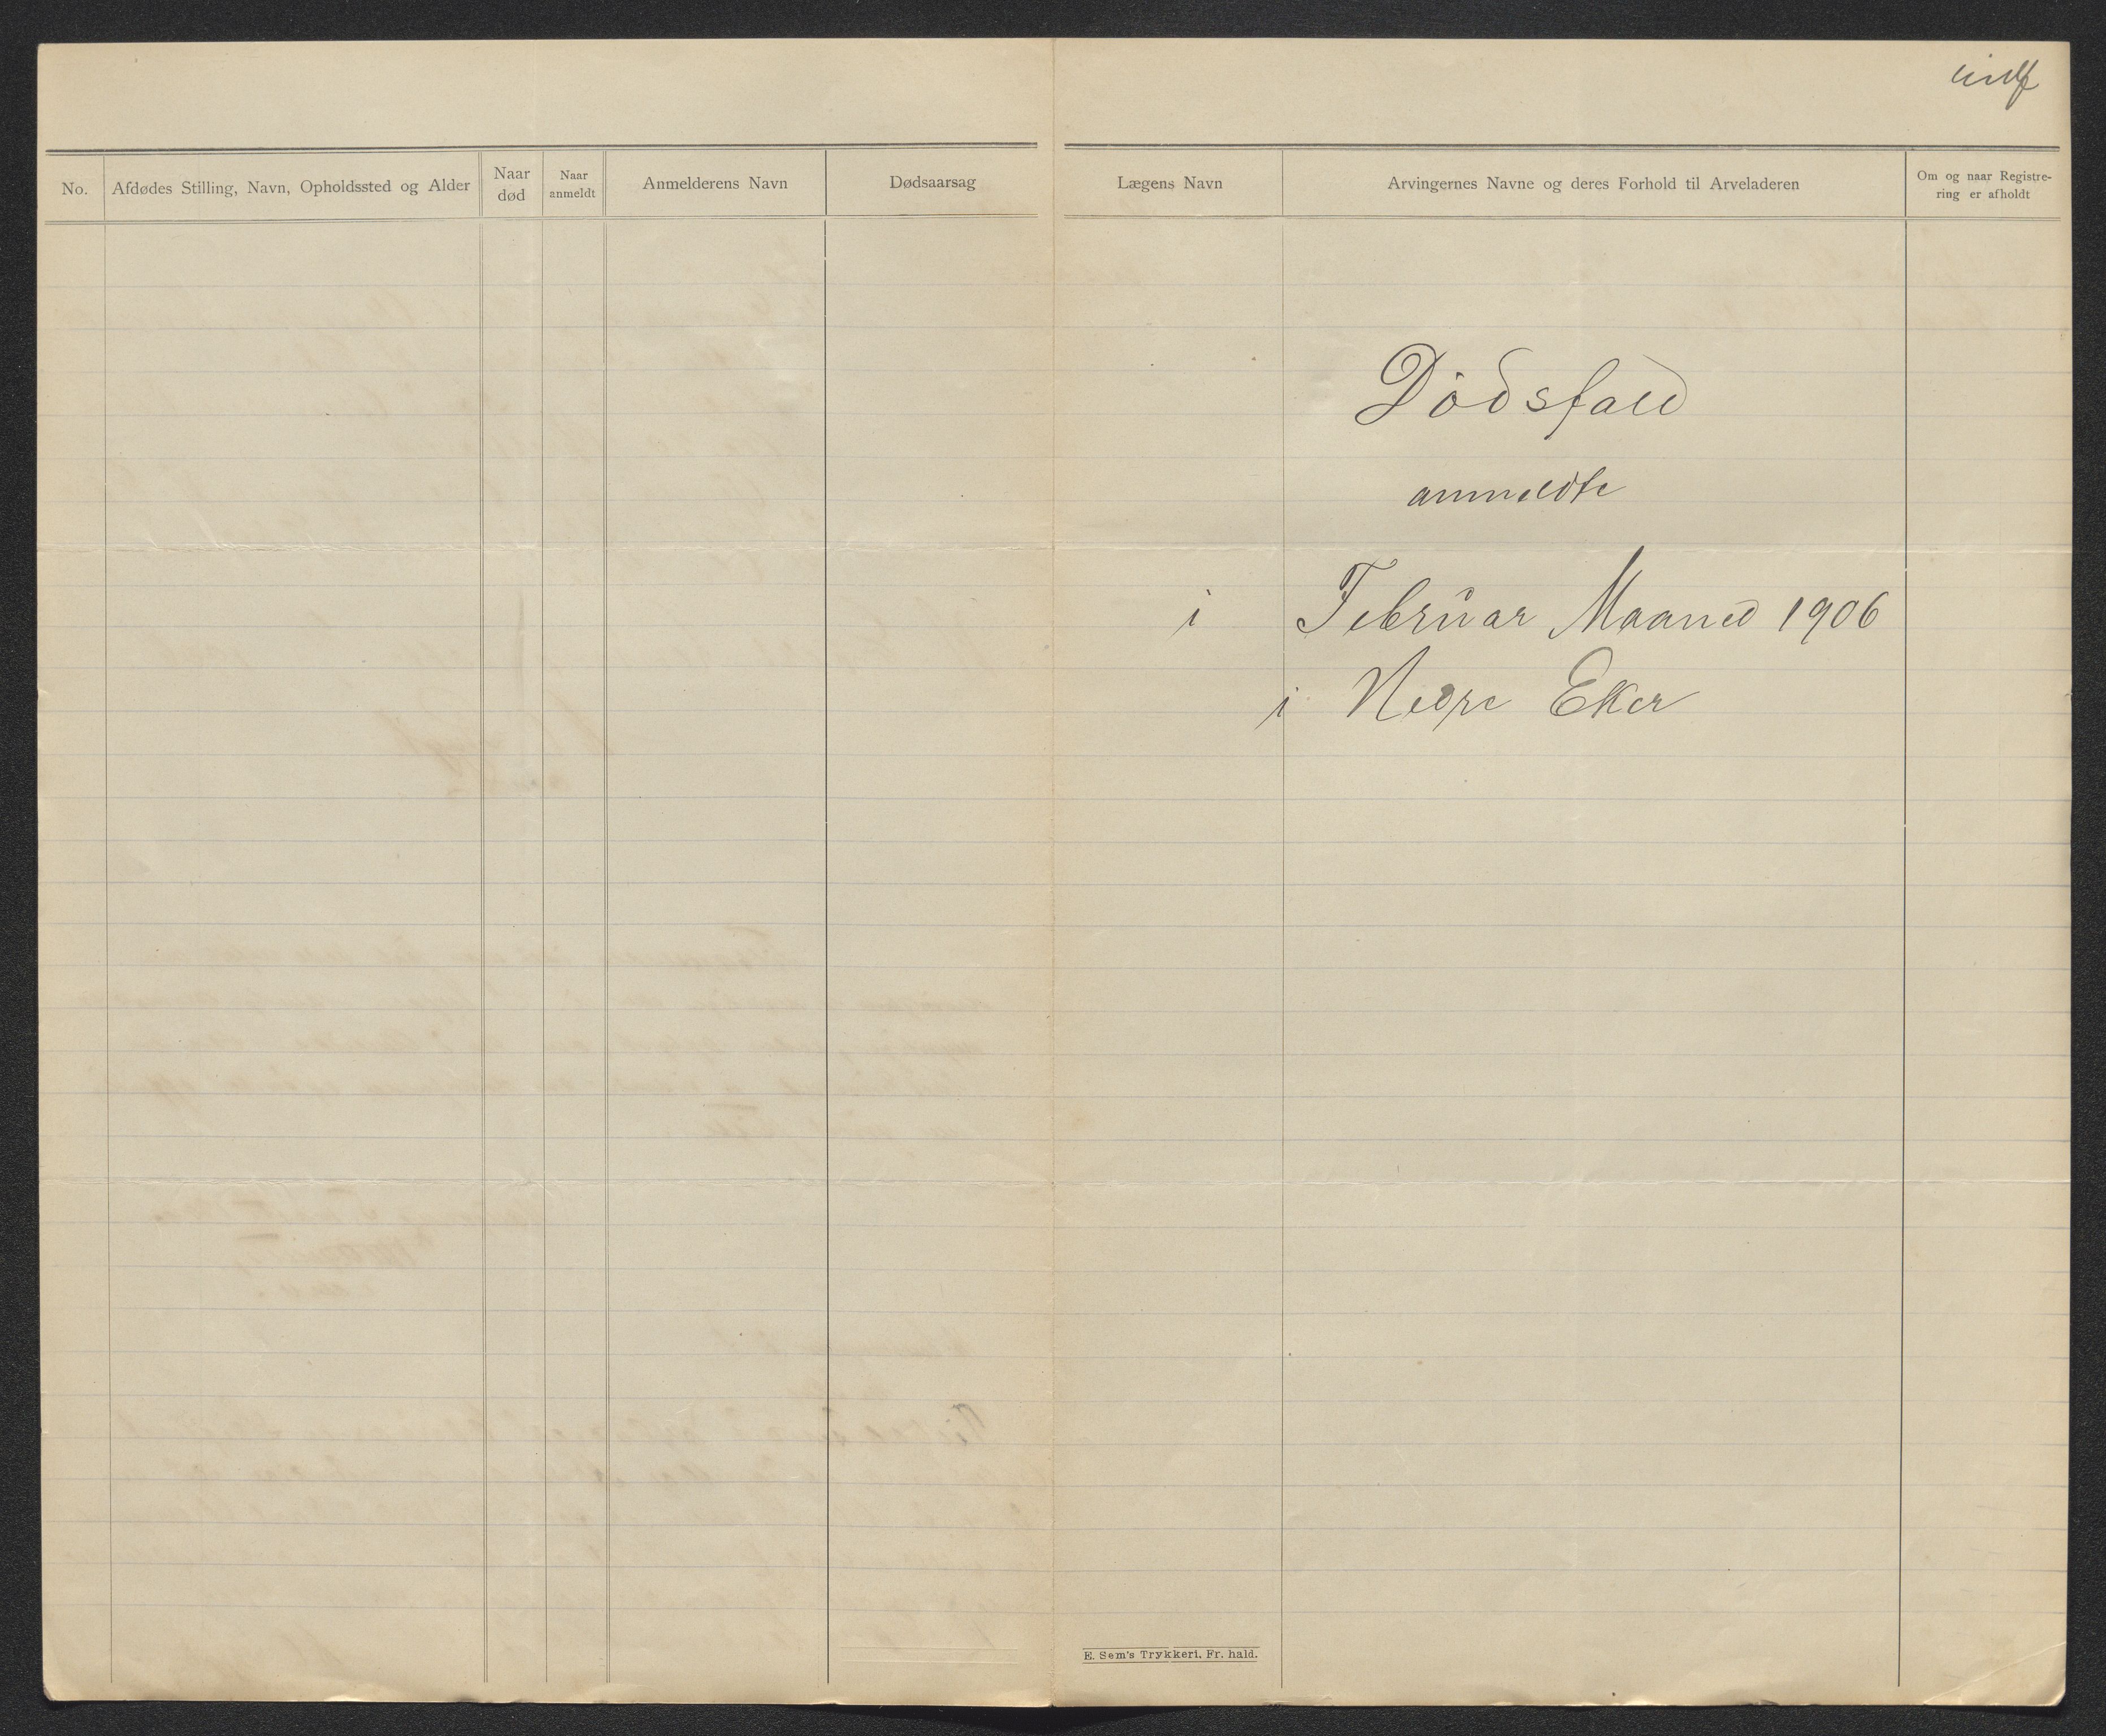 No.
Afdødes Stilling, Navn, Opholdssted og Alder
Naar
død
Naar
anmeldt
Anmelderens Navn
Dødsaarsag
Lægens Navn
Arvingernes Navne og deres Forhold til Arveladeren
Om og naar Registre-
ring er afholdt
Dödsfald
anmeldte
i Februar Maaned 1906
i Nedre Eker
E. Sem's Trykkeri, Fr. hald.